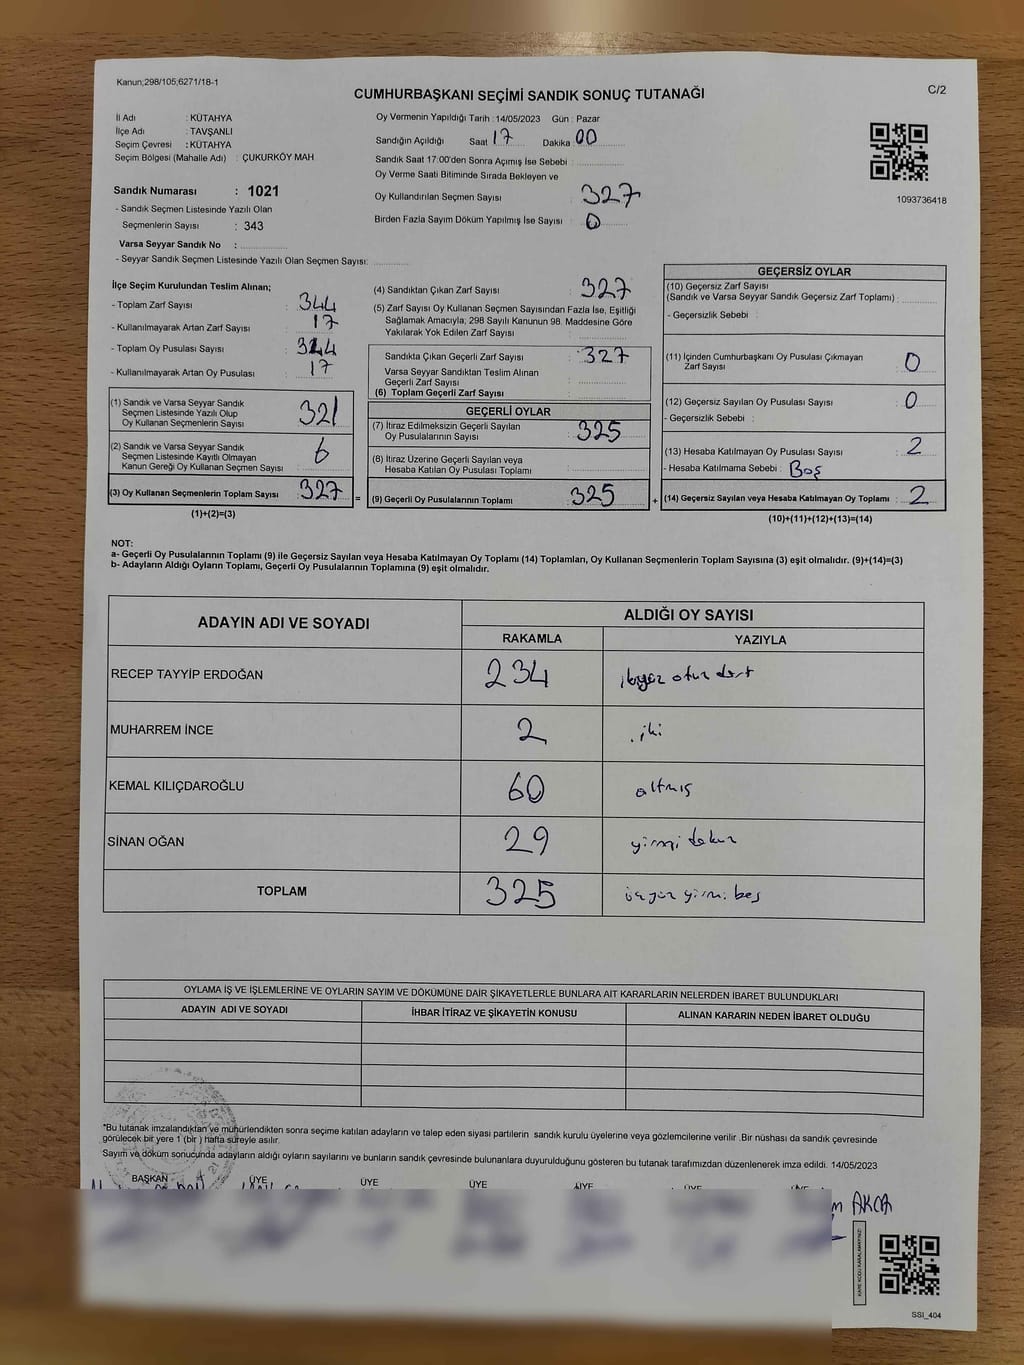 Kanun;298/105;6271/18-1
C/2
CUMHURBAŞKANI SEÇİMİ SANDIK SONUÇ TUTANAĞI
İl Adı : KÜTAHYA
İlçe Adı : TAVŞANLI
Seçim Çevresi : KÜTAHYA
Seçim Bölgesi (Mahalle Adı) : ÇUKURKÖY MAH
Sandık Numarası : 1021
- Sandık Seçmen Listesinde Yazılı Olan
Seçmenlerin Sayısı : 343
Varsa Seyyar Sandık No :
- Seyyar Sandık Seçmen Listesinde Yazılı Olan Seçmen Sayısı:
Oy Vermenin Yapıldığı Tarih : 14/05/2023 Gün : Pazar
Sandığın Açıldığı Saat 17 Dakika : 00
Sandık Saat 17:00'den Sonra Açımış İse Sebebi :
Oy Verme Saati Bitiminde Sırada Bekleyen ve
Oy Kullandırılan Seçmen Sayısı : 327
Birden Fazla Sayım Döküm Yapılmış İse Sayısı : 0
1093736418
İlçe Seçim Kurulundan Teslim Alınan;
- Toplam Zarf Sayısı : 344
- Kullanılmayarak Artan Zarf Sayısı : 17
- Toplam Oy Pusulası Sayısı : 344
- Kullanılmayarak Artan Oy Pusulası : 17
(1) Sandık ve Varsa Seyyar Sandık
Seçmen Listesinde Yazılı Olup
Oy Kullanan Seçmenlerin Sayısı : 321
(2) Sandık ve Varsa Seyyar Sandık
Seçmen Listesinde Kayıtlı Olmayan
Kanun Gereği Oy Kullanan Seçmen Sayısı : 6
(3) Oy Kullanan Seçmenlerin Toplam Sayısı : 327
(1)+(2)=(3)
(4) Sandıktan Çıkan Zarf Sayısı : 327
(5) Zarf Sayısı Oy Kullanan Seçmen Sayısından Fazla İse, Eşitliği
Sağlamak Amacıyla; 298 Sayılı Kanunun 98. Maddesine Göre
Yakılarak Yok Edilen Zarf Sayısı :
Sandıkta Çıkan Geçerli Zarf Sayısı : 327
Varsa Seyyar Sandıktan Teslim Alınan
Geçerli Zarf Sayısı :
(6) Toplam Geçerli Zarf Sayısı :
GEÇERLİ OYLAR
(7) İtiraz Edilmeksizin Geçerli Sayılan
Oy Pusulalarının Sayısı : 325
(8) İtiraz Üzerine Geçerli Sayılan veya
Hesaba Katılan Oy Pusulası Toplamı :
= (9) Geçerli Oy Pusulalarının Toplamı : 325 +
GEÇERSİZ OYLAR
(10) Geçersiz Zarf Sayısı
(Sandık ve Varsa Seyyar Sandık Geçersiz Zarf Toplamı) :
- Geçersizlik Sebebi :
(11) İçinden Cumhurbaşkanı Oy Pusulası Çıkmayan
Zarf Sayısı : 0
(12) Geçersiz Sayılan Oy Pusulası Sayısı : 0
- Geçersizlik Sebebi :
(13) Hesaba Katılmayan Oy Pusulası Sayısı : 2
- Hesaba Katılmama Sebebi : Boş
(14) Geçersiz Sayılan veya Hesaba Katılmayan Oy Toplamı : 2
(10)+(11)+(12)+(13)=(14)
NOT:
a- Geçerli Oy Pusulalarının Toplamı (9) ile Geçersiz Sayılan veya Hesaba Katılmayan Oy Toplamı (14) Toplamları, Oy Kullanan Seçmenlerin Toplam Sayısına (3) eşit olmalıdır. (9)+(14)=(3)
b- Adayların Aldığı Oyların Toplamı, Geçerli Oy Pusulalarının Toplamına (9) eşit olmalıdır.
ADAYIN ADI VE SOYADI ALDIĞI OY SAYISI
RAKAMLA YAZIYLA
RECEP TAYYİP ERDOĞAN 234 ikiyüz otuz dört
MUHARREM İNCE 2 iki
KEMAL KILIÇDAROĞLU 60 altmış
SİNAN OĞAN 29 yirmi dokuz
TOPLAM 325 üçyüz yirmi beş
OYLAMA İŞ VE İŞLEMLERİNE VE OYLARIN SAYIM VE DÖKÜMÜNE DAİR ŞİKAYETLERLE BUNLARA AİT KARARLARIN NELERDEN İBARET BULUNDUKLARI
ADAYIN ADI VE SOYADI İHBAR İTİRAZ VE ŞİKAYETİN KONUSU ALINAN KARARIN NEDEN İBARET OLDUĞU
*Bu tutanak imzalandıktan ve mühürlendikten sonra seçime katılan adayların ve talep eden siyasi partilerin sandık kurulu üyelerine veya gözlemcilerine verilir .Bir nüshası da sandık çevresinde
görülecek bir yere 1 (bir ) hafta süreyle asılır.
Sayım ve döküm sonucunda adayların aldığı oyların sayılarını ve bunların sandık çevresinde bulunanlara duyurulduğunu gösteren bu tutanak tarafımızdan düzenlenerek imza edildi. 14/05/2023
BAŞKAN ÜYE ÜYE ÜYE ÜYE ÜYE
AKCA
KARE KODU KARALAMAYINIZ!
SSI_404